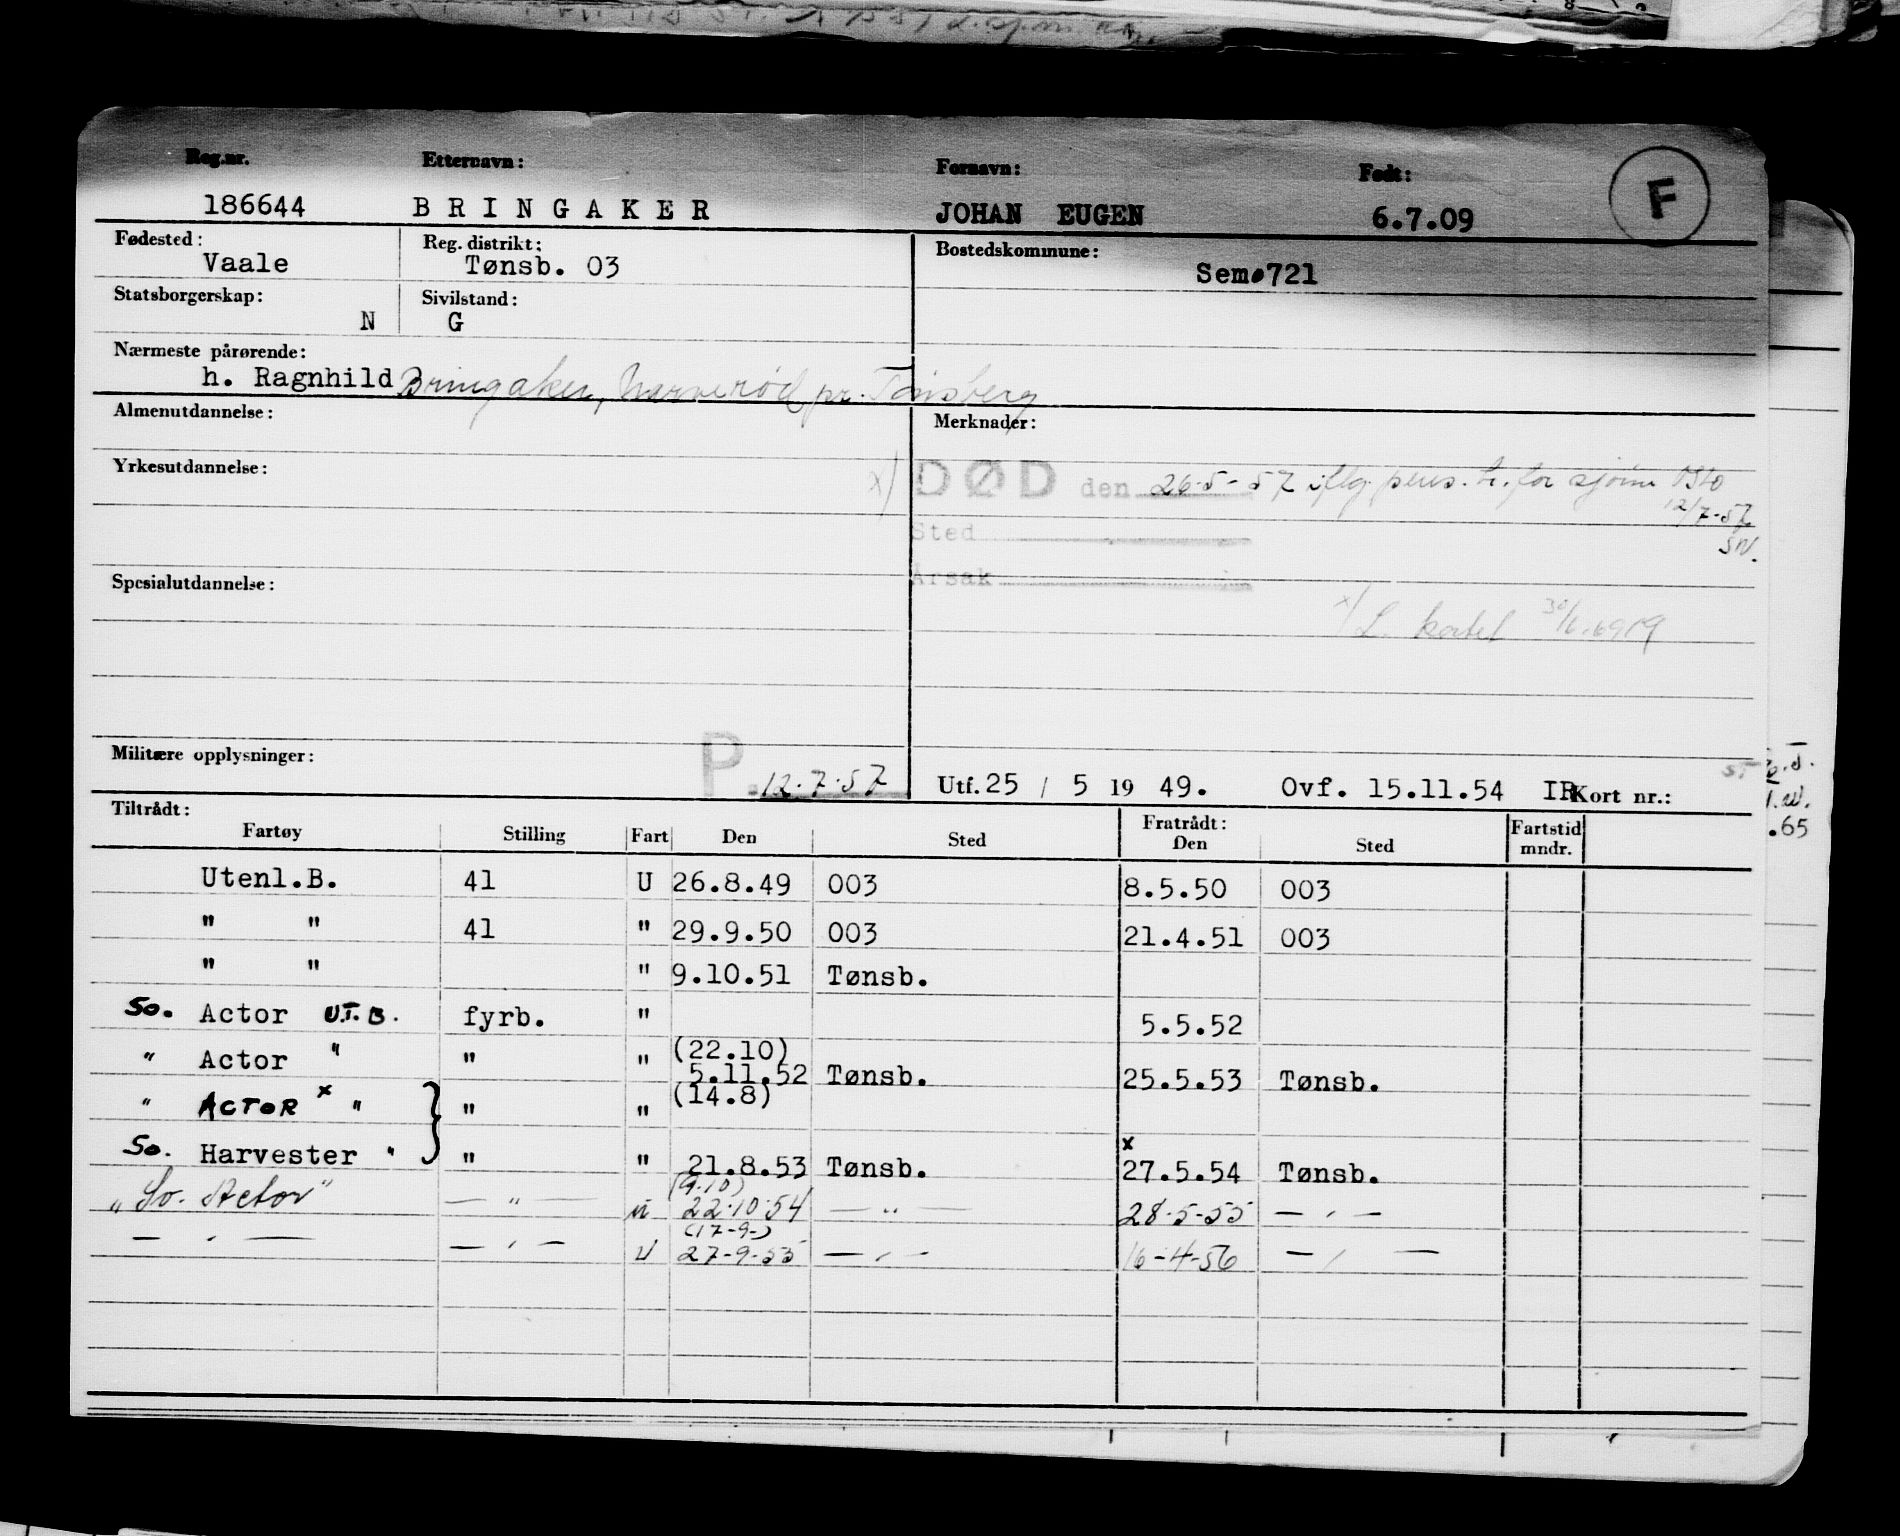 Reg.nr. Etternavn: Fornavn: Født:
186644 BRINGAKER JOHAN EUGEN 6.7.09 F
Fødested: Reg. distrikt: Bostedskommune:
Vaale Tønsb. 03 Sem.721
Statsborgerskap: Sivilstand:
N G
Nærmeste pårørende:
h. Ragnhild Bringaker, Narverød pr. Tønsberg
Almenutdannelse: Merknader:
Yrkesutdannelse:
x) DØD den 26-5-57 iflg. pens.tr. for sjøm Oslo
12/7-57
Sted SN.
Årsak
Spesialutdannelse:
x) L. kortet
Militære opplysninger: P 12.7.57
Utf. 25 / 5 19 49. Ovf. 15.11.54 IR Kort nr.:
.65
Tiltrådt: Fratrådt:
Fartøy Stilling Fart Den Sted Den Sted Fartstid mndr.
Utenl.B. 41 U 26.8.49 003 8.5.50 003
" " 41 " 29.9.50 003 21.4.51 003
" " " 9.10.51 Tønsb.
So. Actor U.T.B. fyrb. " 5.5.52
" Actor " " " (22.10) 5.11.52 Tønsb. 25.5.53 Tønsb.
" ACTOR x " } " " (14.8)
So. Harvester " " " 21.8.53 Tønsb. x 27.5.54 Tønsb.
"So. Actor" — " — u (9.10) 22.10.54 — " — 28-5-55 — " —
— " — — " — U (17-9-) 27-9-55 — " — 16-4-56 — " —